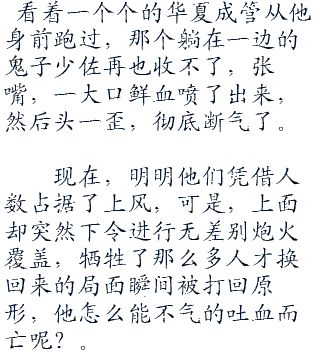 看着一个个的华夏成管从他
身前跑过，那个躺在一边的
鬼子少佐再也收不了，张
嘴，一大口鲜血喷了出来，
然后头一歪，彻底断气了。
现在，明明他们凭借人
数占据了上风，可是，上面
却突然下令进行无差别炮火
覆盖，牺牲了那么多人才换
回来的局面瞬间被打回原
形，他怎么能不气的吐血而
亡呢？。